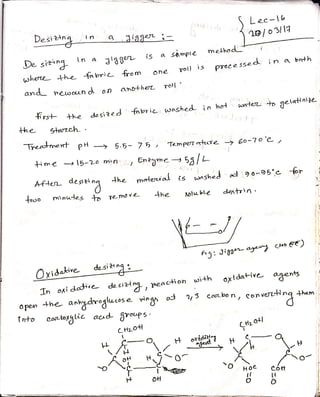 Lec-16
20/03/17
Desizing in a jigger :-
De sizing in a jigger is a simple method
where the fabric from one roll is precessed in a bath
and rewound on another roll.
first the desized fabric washed in hot water to gelatinize
the starch.
Treatment pH → 5.5-7.5, Temperature → 60-70°c,
time → 15-20 min, Enzyme → 5g/L
After desizing the material is washed at 90-95°c for
two minutes to remove the soluble dextrin.
fig: Jigger
Oxidative desizing:
In oxidative desizing, reaction with oxidative agents
open the anhydroglucose rings at 2,3 carbon, converting them
into carboxylic acid groups.
CH₂OH CH₂OH
H C O H oxidizing agent H C O H
C OH H C O C H C O
O C C O HOC COH
H OH O O